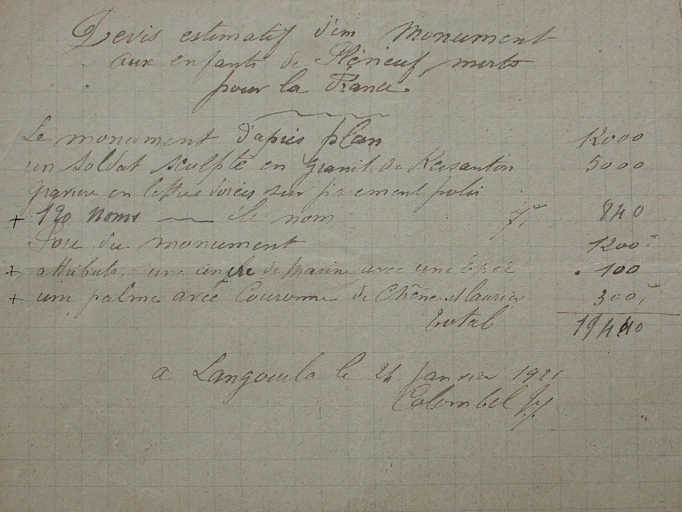 Devis estimatif d'un Monument
aux enfants de Pléneuf morts
pour la France.
Le monument d'après plan 12000
un Soldat sculpté en granit de Kersanton 5000
gravure en lettre dorées sur parement poli
+ 120 Noms — le nom 7f 840
Pose du monument 1200
+ attributs, une ancre de marine avec une épée 100
+ une palme avec Couronne de Chêne et laurier 300
total 19440
a Langourla le 24 Janvier 1921
Colombel